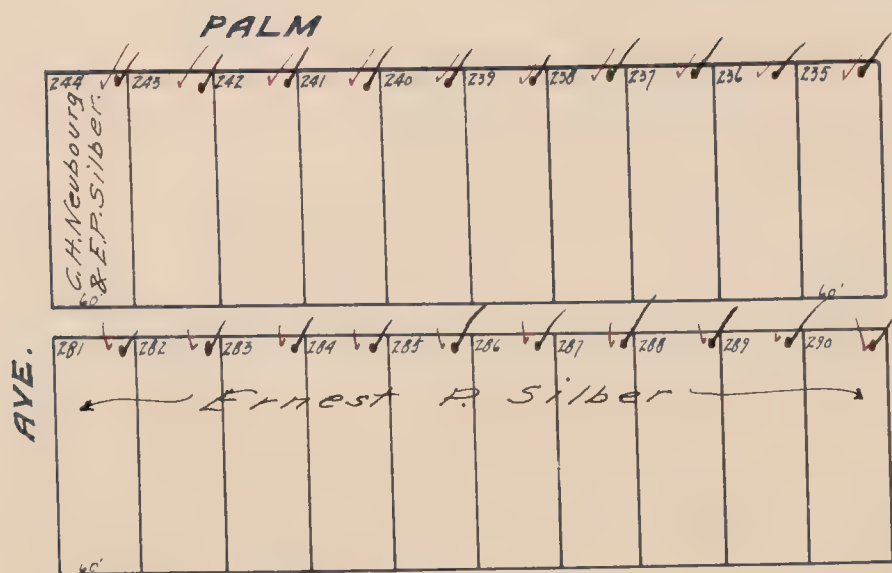 PALM
244 243 242 241 240 239 238 237 236 235
G.H. Neubourg
& E.P. Silber.
60' 60'
AVE.
281 282 283 284 285 286 287 288 289 290
Ernest P. Silber
60'